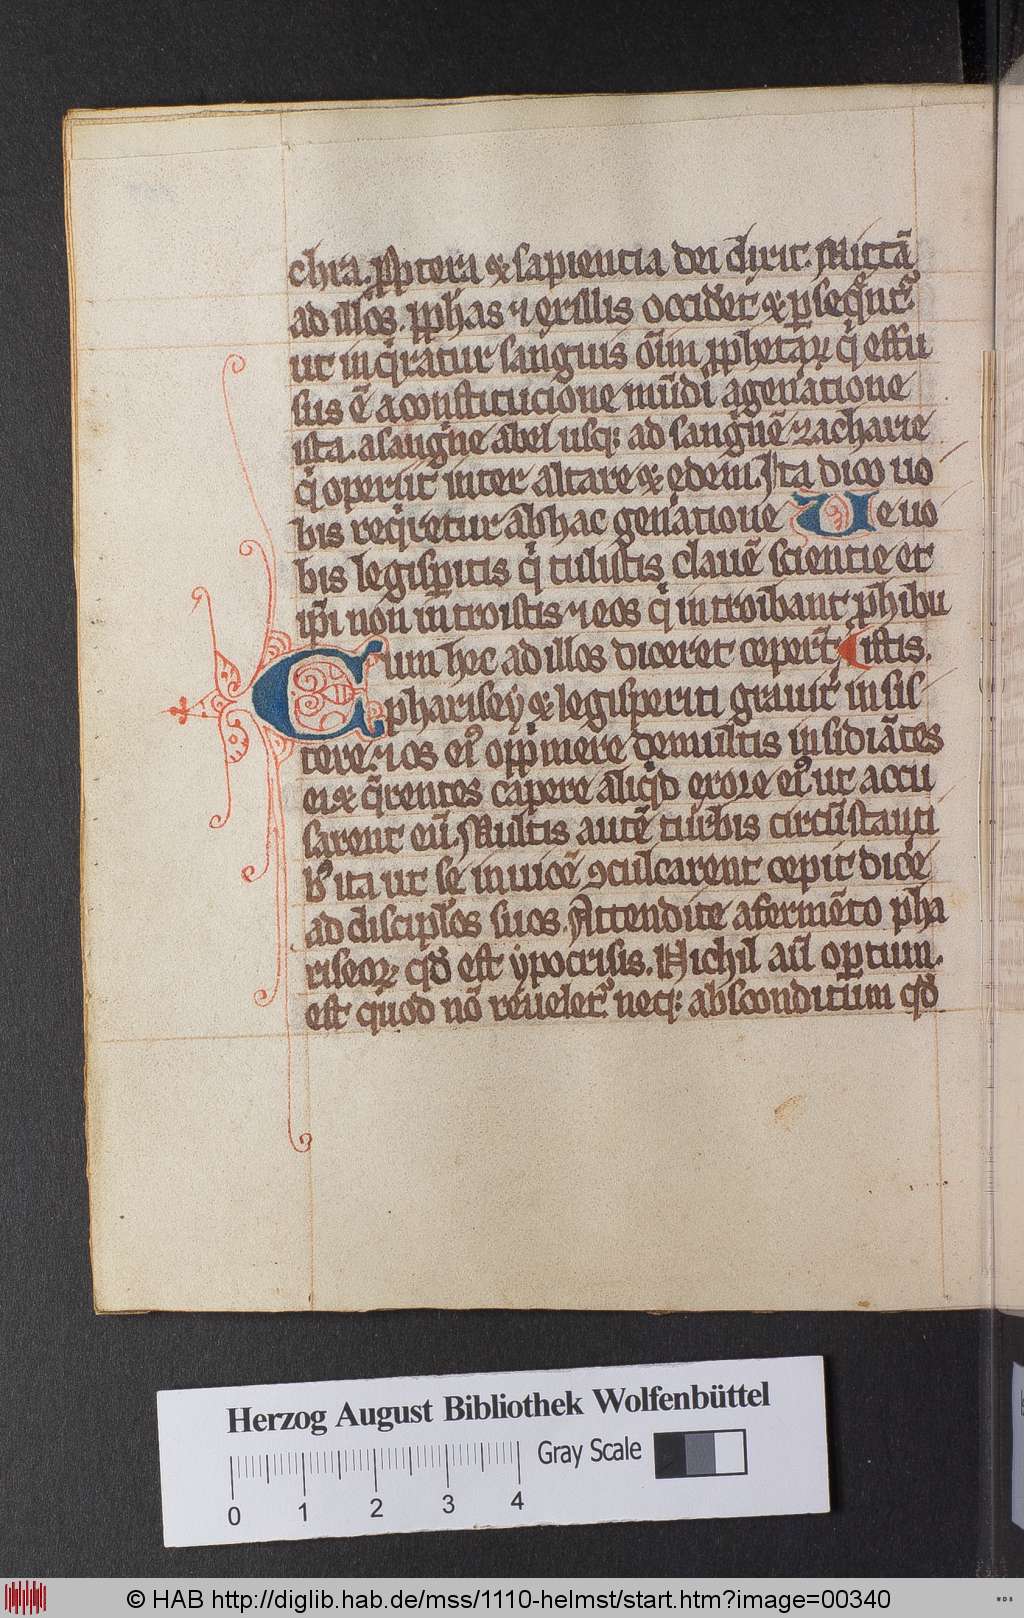 chra. p̱ptera ⁊ sapiencia dei dixit. Mittā
ad illos. p̱phas ⁊ exillis occidēt ⁊ ꝑseq̄nt᷑
ut inq̇ratur sanguis oīm p̱phetaꝝ q̇ effu
sus ē aconstitucione mūdi agen̄atione
ista. asangīne abel usq; ad sangīnē zacharie
q̇ operiit inter altare ⁊ edem. Ita dico uo
bis req̇retur abhac gen̄atione Ve uo
bis legisꝑitis q̇ tulistis clauē scientie et
ip̄i non introistis ⁊ eos q̇ introibant ꝓhibu
Cum hec ad illos diceret ceper̄t istis.
pharisey ⁊ legisperiti grauit̄ insis
tere. ⁊ os ei᷒ opṗmere demultis insidiātes
ei ⁊ q̄rentes capere aliq̇d exore ei᷒ ut accu
sarent eū. Multis autē turbis circūstanti
b᷒ ita ut se inuicē ꝯculcarent cepit dice̅
ad discipl̄os suos. Attendite afermēto pha
riseoꝝ qd̄ est ypocrisis. Nichil aūt opertum.
est quod nō reuelet᷑ neq; absconditum qd̄
Herzog August Bibliothek Wolfenbüttel
Gray Scale
0 1 2 3 4
© HAB http://diglib.hab.de/mss/1110-helmst/start.htm?image=00340